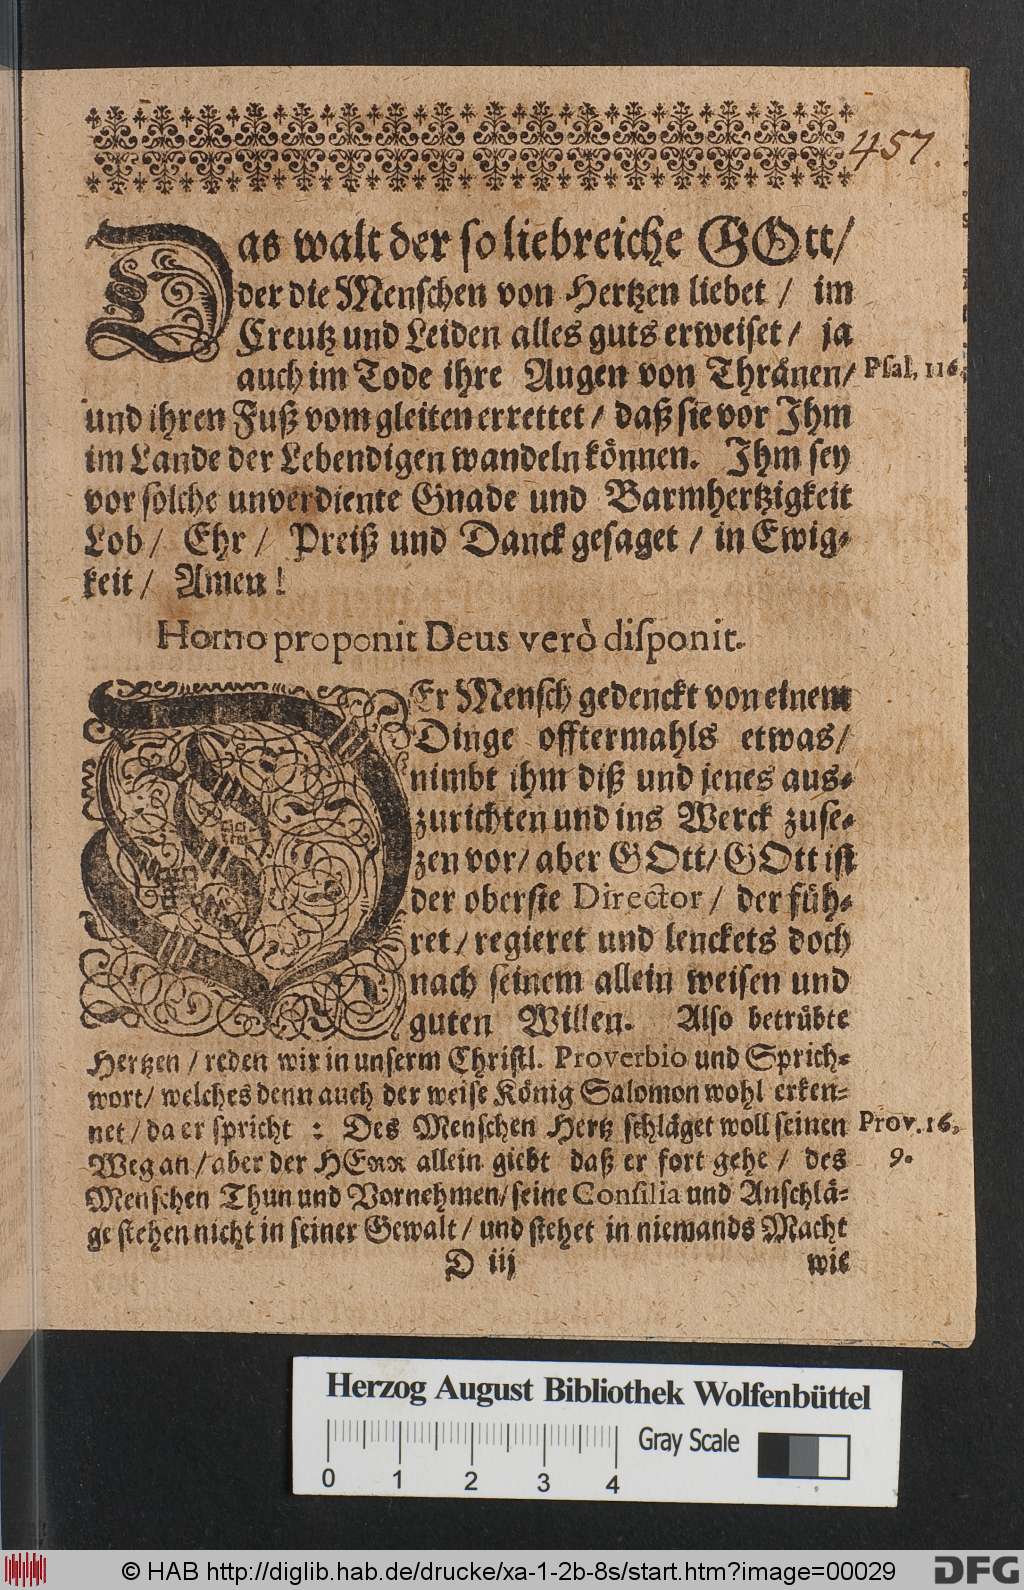 457.
Das walt der so liebreiche GOtt/
der die Menschen von Hertzen liebet / im
Creutz und Leiden alles guts erweiset / ja
auch im Tode ihre Augen von Thränen/ Psal. 116.
und ihren Fuß vom gleiten errettet / daß sie vor Ihm
im Lande der Lebendigen wandeln können. Ihm sey
vor solche unverdiente Gnade und Barmhertzigkeit
Lob / Ehr / Preiß und Danck gesaget / in Ewig-
keit / Amen !
Homo proponit Deus verò disponit.
DEr Mensch gedenckt von einem
Dinge offtermahls etwas/
nimbt ihm diß und jenes aus-
zurichten und ins Werck zuse-
zen vor/ aber GOtt/ GOtt ist
der oberste Director / der füh-
ret / regieret und lenckets doch
nach seinem allein weisen und
guten Willen. Also betrübte
Hertzen / reden wir in unserm Christl. Proverbio und Sprich-
wort/ welches denn auch der weise König Salomon wohl erken-
net / da er spricht : Des Menschen Hertz schläget woll seinen Prov. 16,
Weg an / aber der HErr allein giebt daß er fort gehe / des 9.
Menschen Thun und Vornehmen/ seine Consilia und Anschlä-
ge stehen nicht in seiner Gewalt / und stehet in niemands Macht
D iij wie
Herzog August Bibliothek Wolfenbüttel
Gray Scale
0 1 2 3 4
© HAB http://diglib.hab.de/drucke/xa-1-2b-8s/start.htm?image=00029
DFG